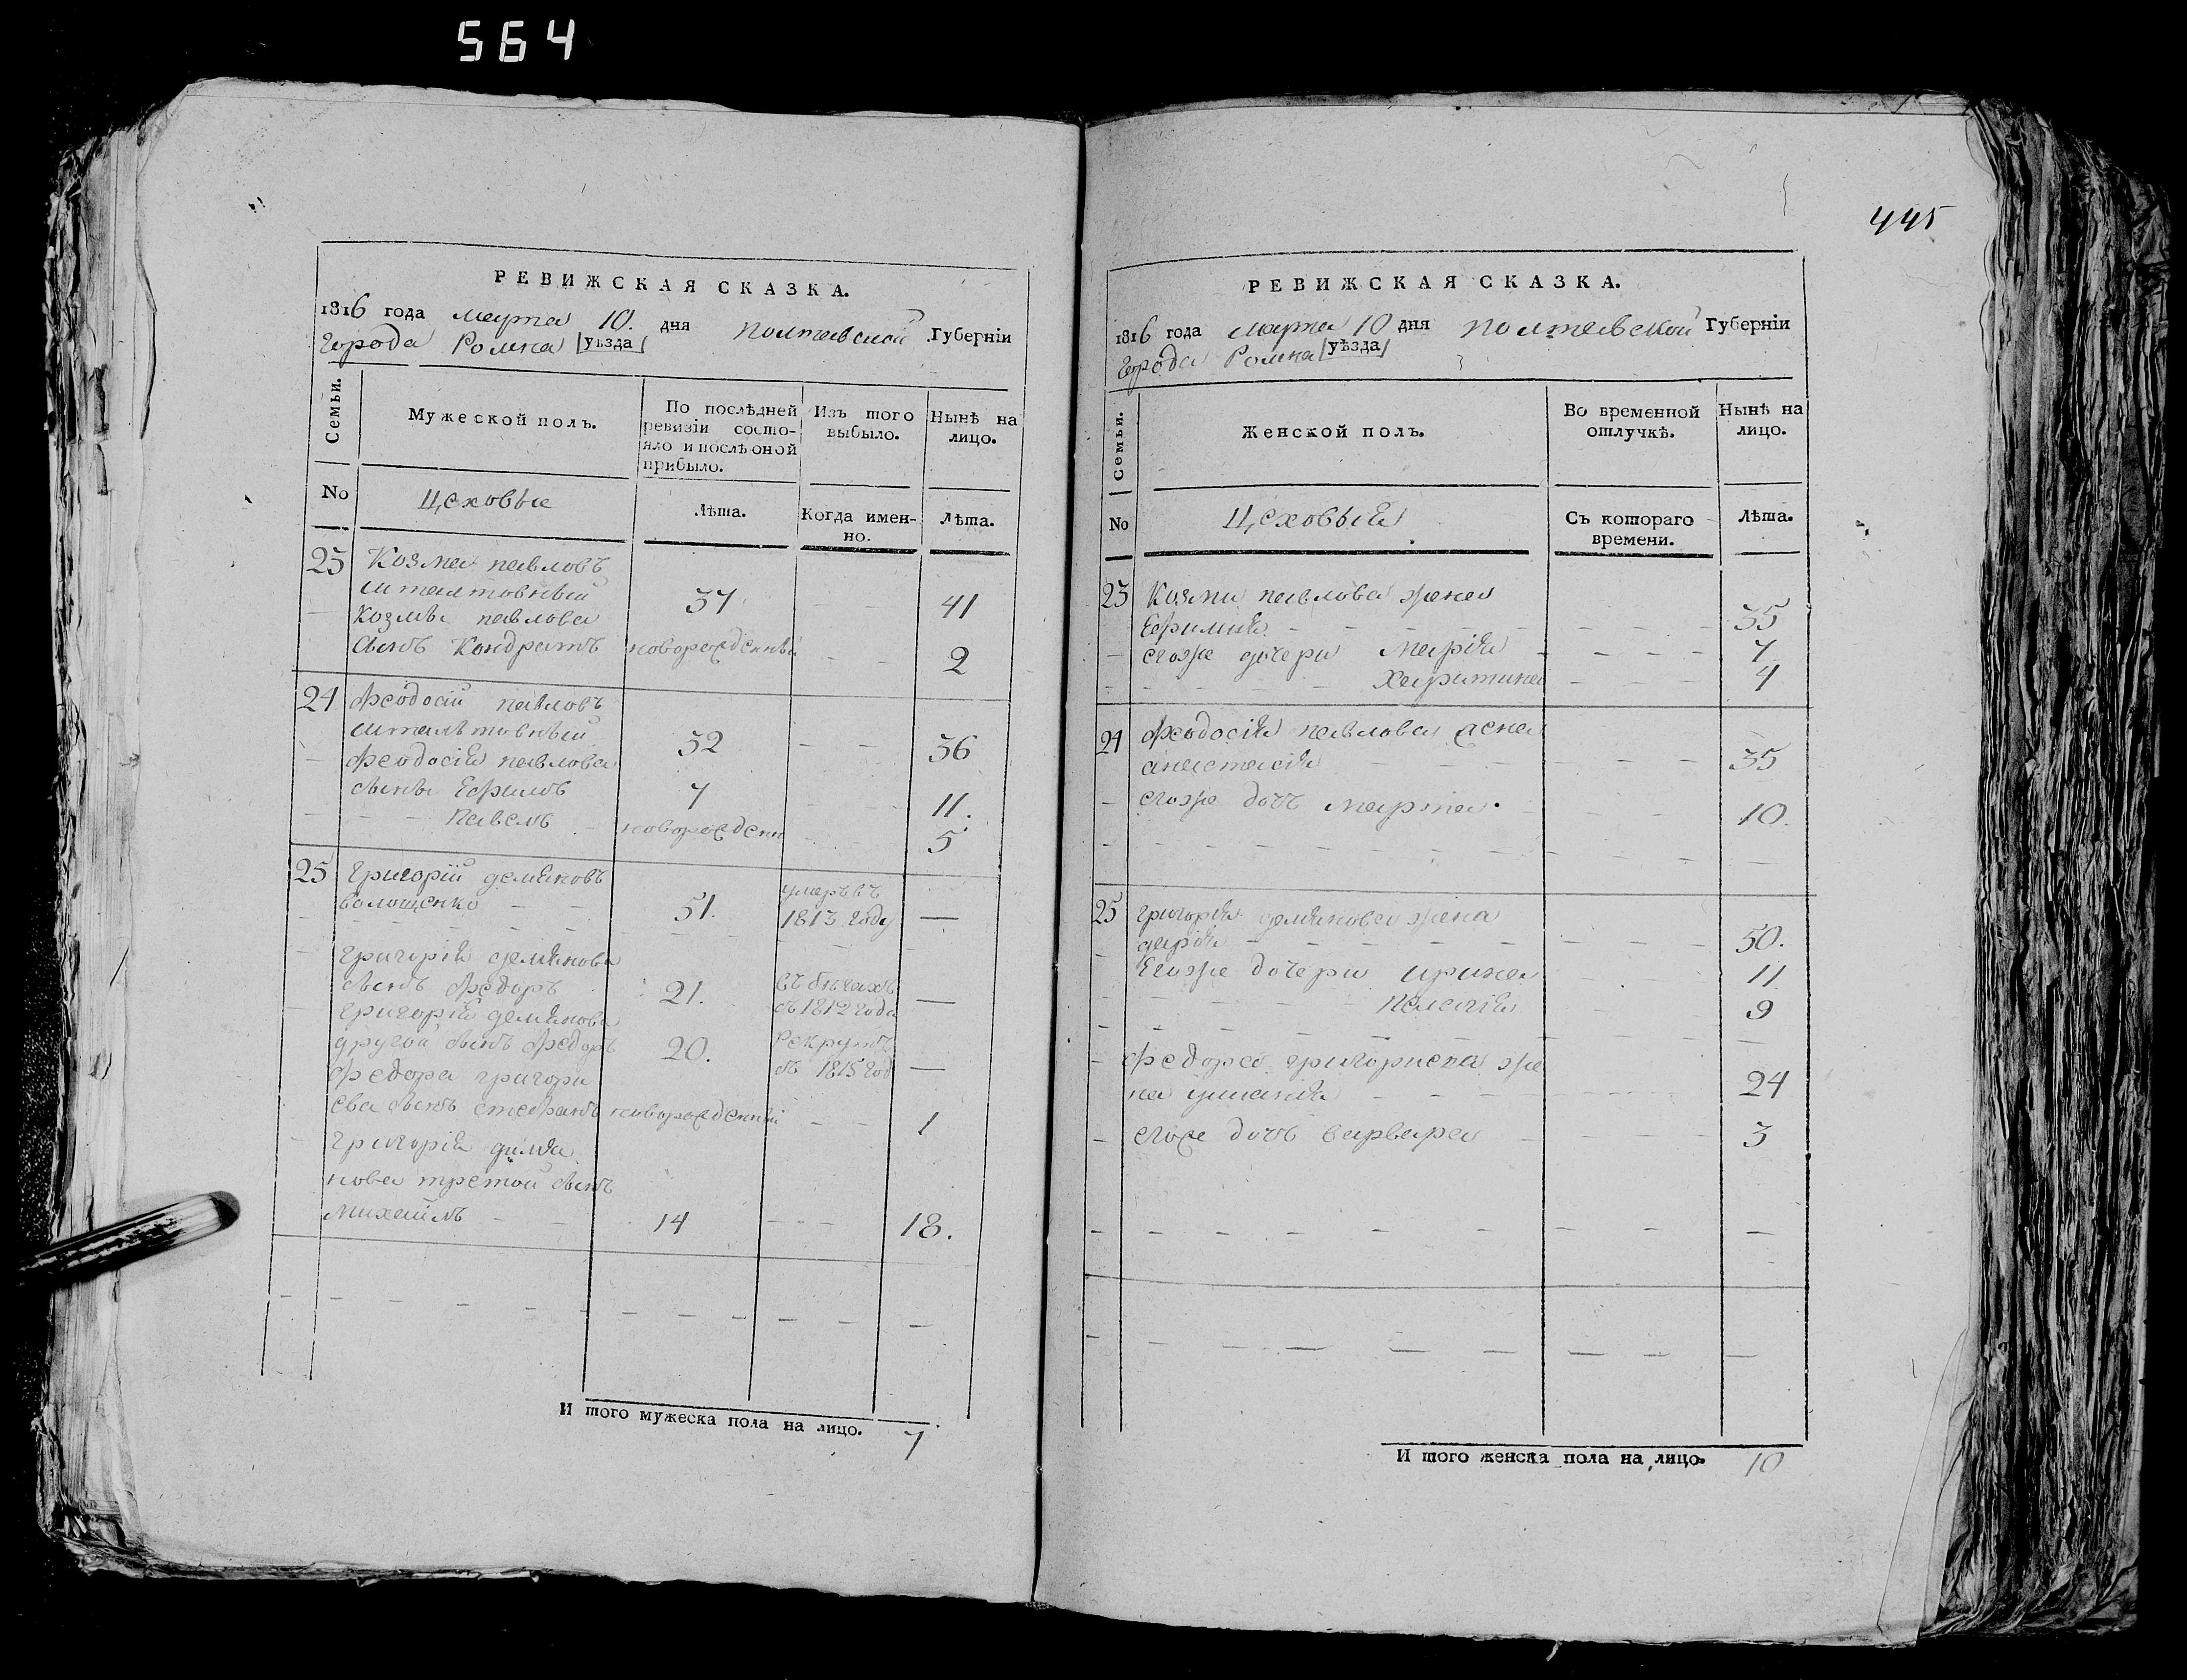 564
РЕВИЖСКАЯ СКАЗКА.
1816 года марта 10. дня Полтавской Губерніи
Города Ромна [уѣзда]
Семьи.
Мужеской полъ.
По послѣдней ревизіи состояло и послѣ оной прибыло.
Изъ того выбыло.
Нынѣ на лицо.
No
Цеховые
Лѣта.
Когда именно.
Лѣта.
23 Козма павловъ
37 41
Козмы павлова
сынъ Кондратъ новорожденный 2
24 Феодосій павловъ
32 36
Феодосія павлова
сыны Ефимъ 7 11.
Павелъ новорожден 5
25 Григорій демяновъ
волошенко 51. умеръ въ 1813 году
Григорія демянова
сынъ Федоръ 21. въ бѣгахъ съ 1812 года
Григорія демянова
другой сынъ Федоръ 20. Рекрутъ въ 1815 год
Федора григори
ева сынъ стефанъ новорожденный 1
Григорія демя
нова третой сынъ
Михаилъ 14 18.
И того мужеска пола на лицо. 7
445
РЕВИЖСКАЯ СКАЗКА.
1816 года марта 10 дня Полтавской Губерніи
Города Ромна [уѣзда]
Семьи.
Женской полъ.
Во временной отлучкѣ.
Нынѣ на лицо.
No
Цеховыя
Съ котораго времени.
Лѣта.
23 Козми павлова жена
Ефимия 35
егоже дочери Марія 7
Харитина 4
24 Феодосія павлова жена
анастасія 35
егоже дочь марта. 10.
25 григорія демянова жена
дарія 50.
Егоже дочери ирина 11
Пелагія 9
Федора григориева же
на 24
егоже дочь варвара 3
И того женска пола на лицо. 10